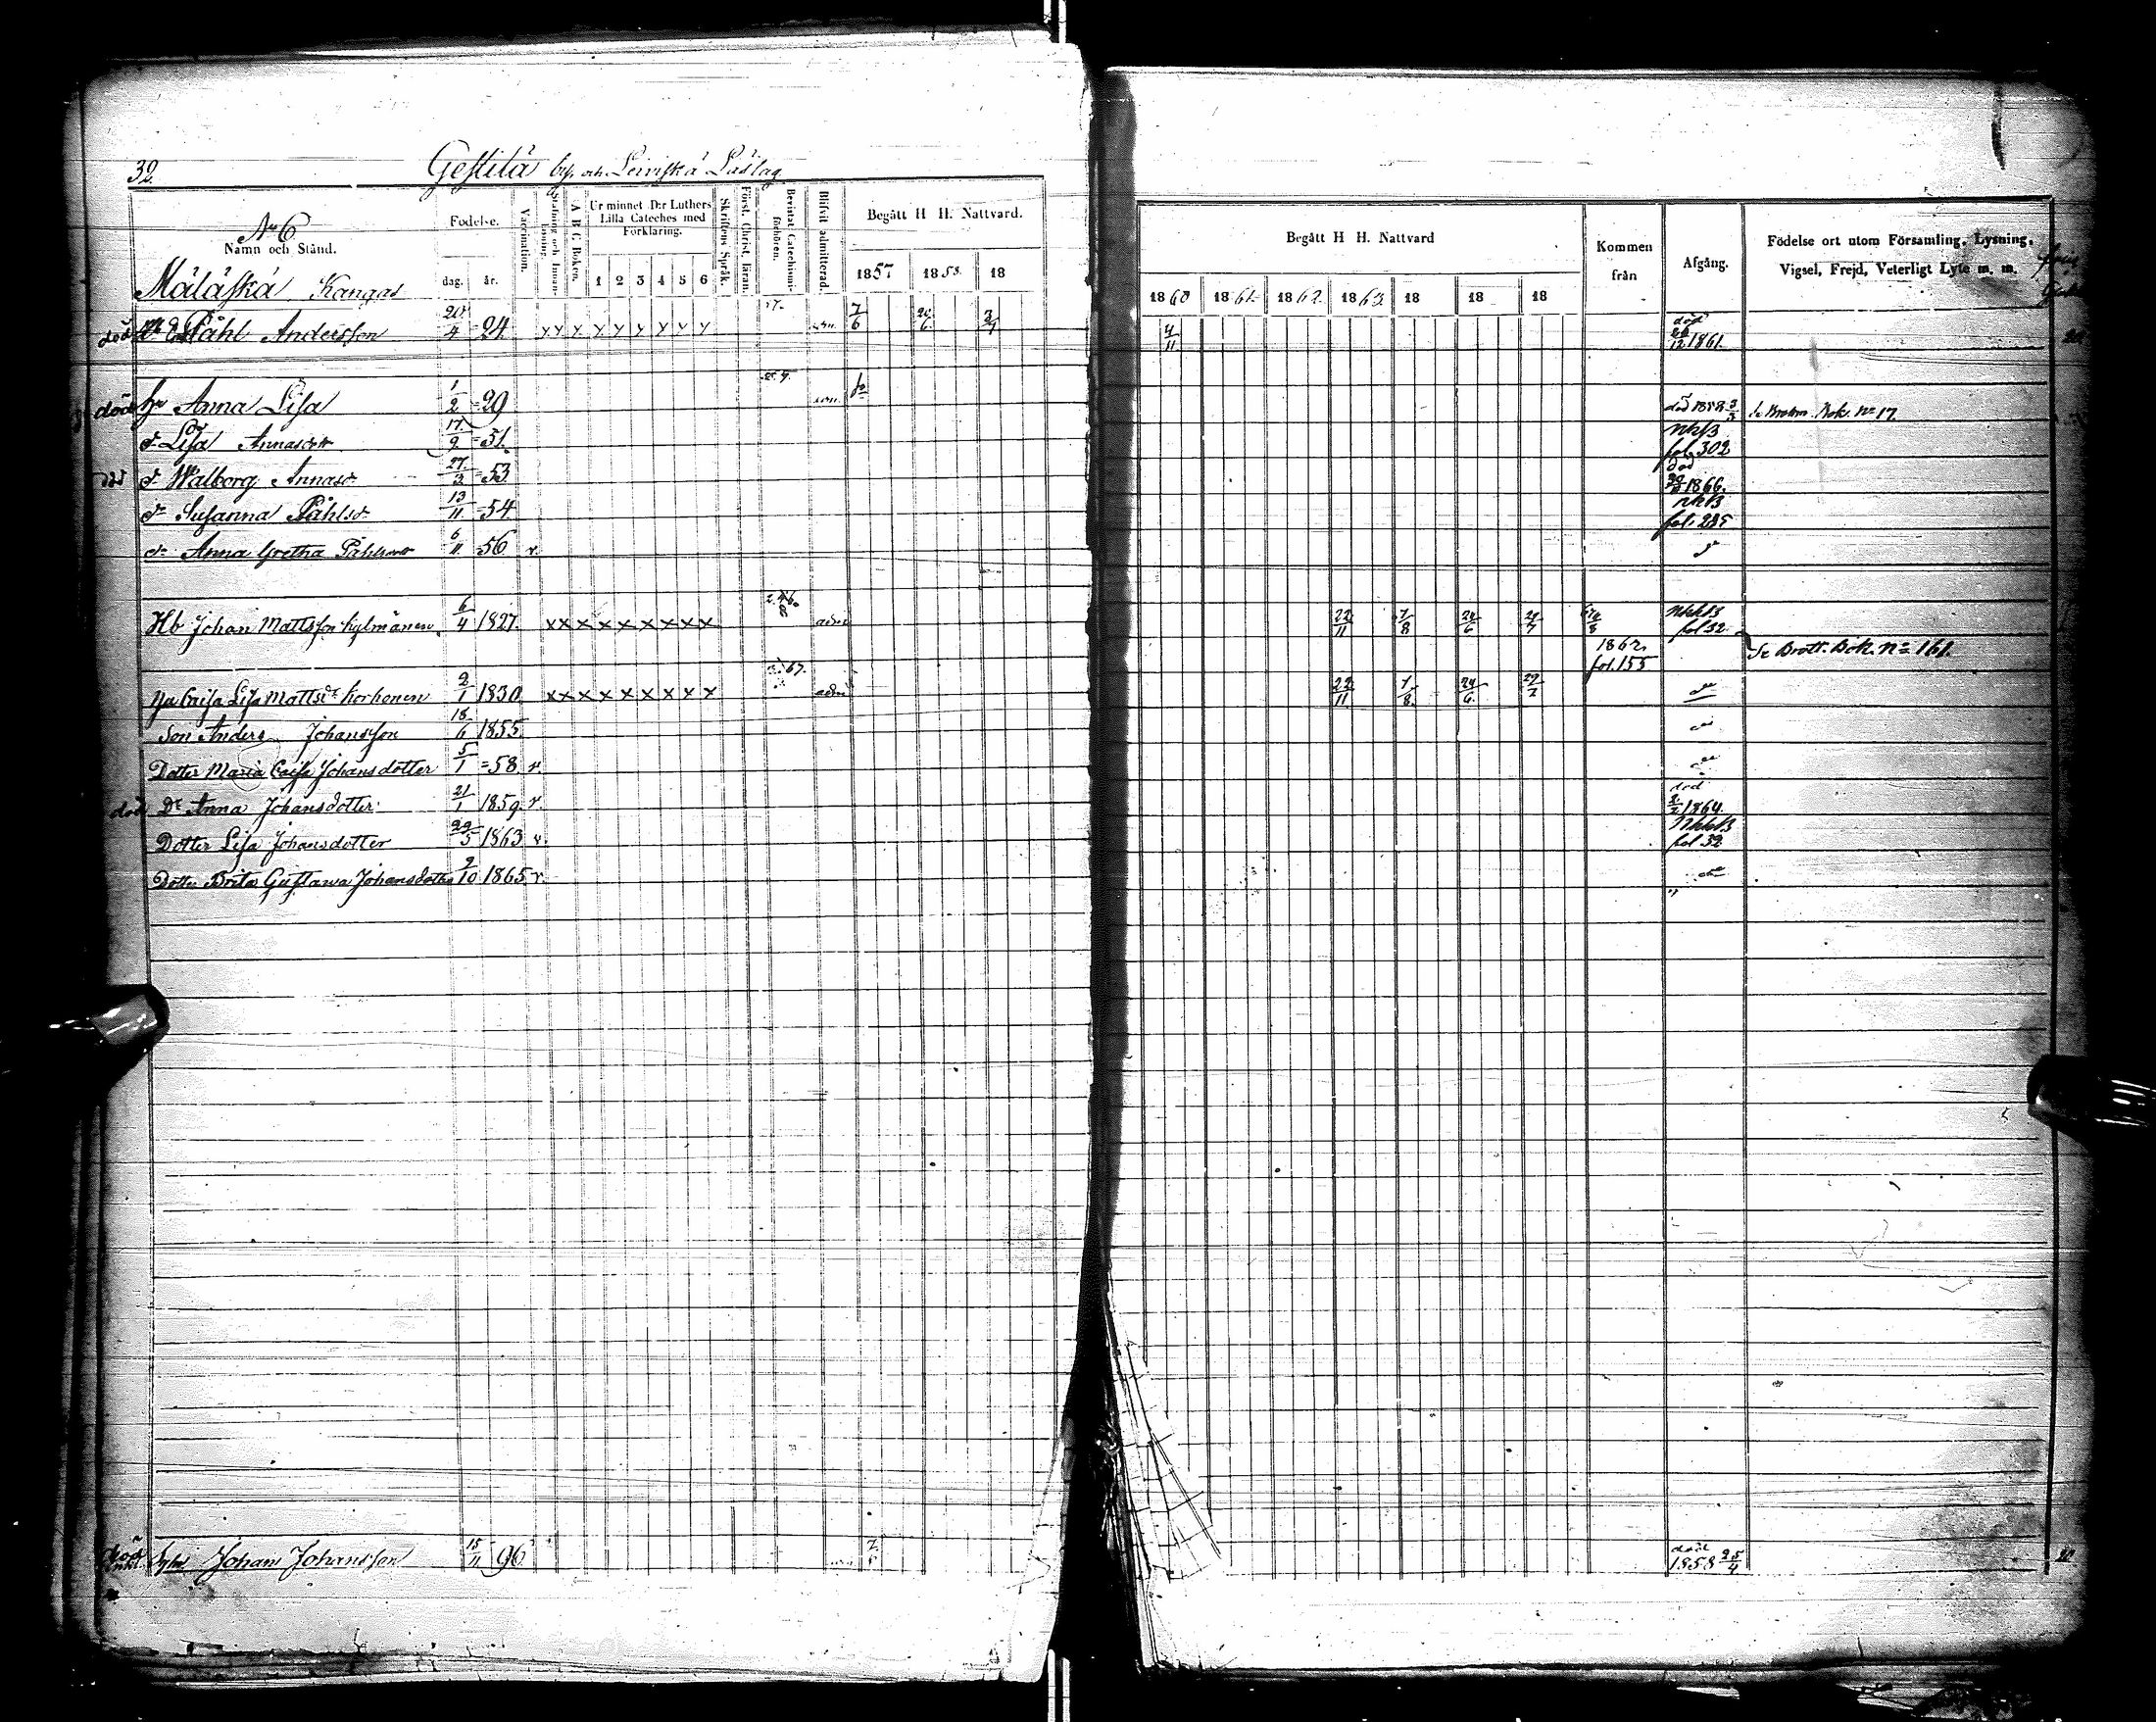 32.
Gestilä by och Leiniskä Läslag
No 6
Namn och Stånd.
Födelse.
dag. år.
Vaccination.
Stafning och Innan-läsning.
A B C Boken.
Ur minnet D:r Luthers Lilla Cateches med Förklaring.
1 2 3 4 5 6
Skriftens Språk.
Först. Christ. läran.
Bevistat Catechismi-förhören.
Blifvit admitterad.
Begått H H. Nattvard.
1857 1858 18
Begått H H. Nattvard
1860 1861 1862 1863 18 18 18
Kommen från
Afgång.
Födelse ort utom Församling, Lysning,
Vigsel, Frejd, Veterligt Lyte m. m.
Mäläskä Kangas
död Påhl Andersson 20/4 =24 7/6 4/11 död 1861
död hu Anna Lisa 1/2 =29 död 1858 3/3 No 17
dr Lisa Annasdtr 17/9 =51. NkB fol. 302
död dr Walborg Annasdr 27/2 =53 död 1866.
dr Susanna Påhlsdr 13/11 =54 NkB fol. 285
dr Anna Gretha Påhlsdtr 6/11 56 v. do
Hb Johan Mattsson Kylmänen 6/4 1827. x x x x x x x x x adm 22/11 7/8 24/6 1862 fol. 155 NkkB fol 32 Se Brott. Bok. No 161.
Hu Caisa Lisa Mattsdr Korhonen 2/1 1830 x x x x x x x x x adm 22/11 7/8 24/6 do
Son Anders Johansson 18/6 1855 do
Dotter Maria Caisa Johansdotter 5/1 =58 v. do
död Dr Anna Johansdotter 21/1 1859. v. död 1864.
Dotter Lisa Johansdotter 29/5 1863 v. NkkB fol 32
Dotter Brita Gustawa Johansdotter 2/10 1865 v. do
död Johan Johansson 15/11 96 död 1858 25/4